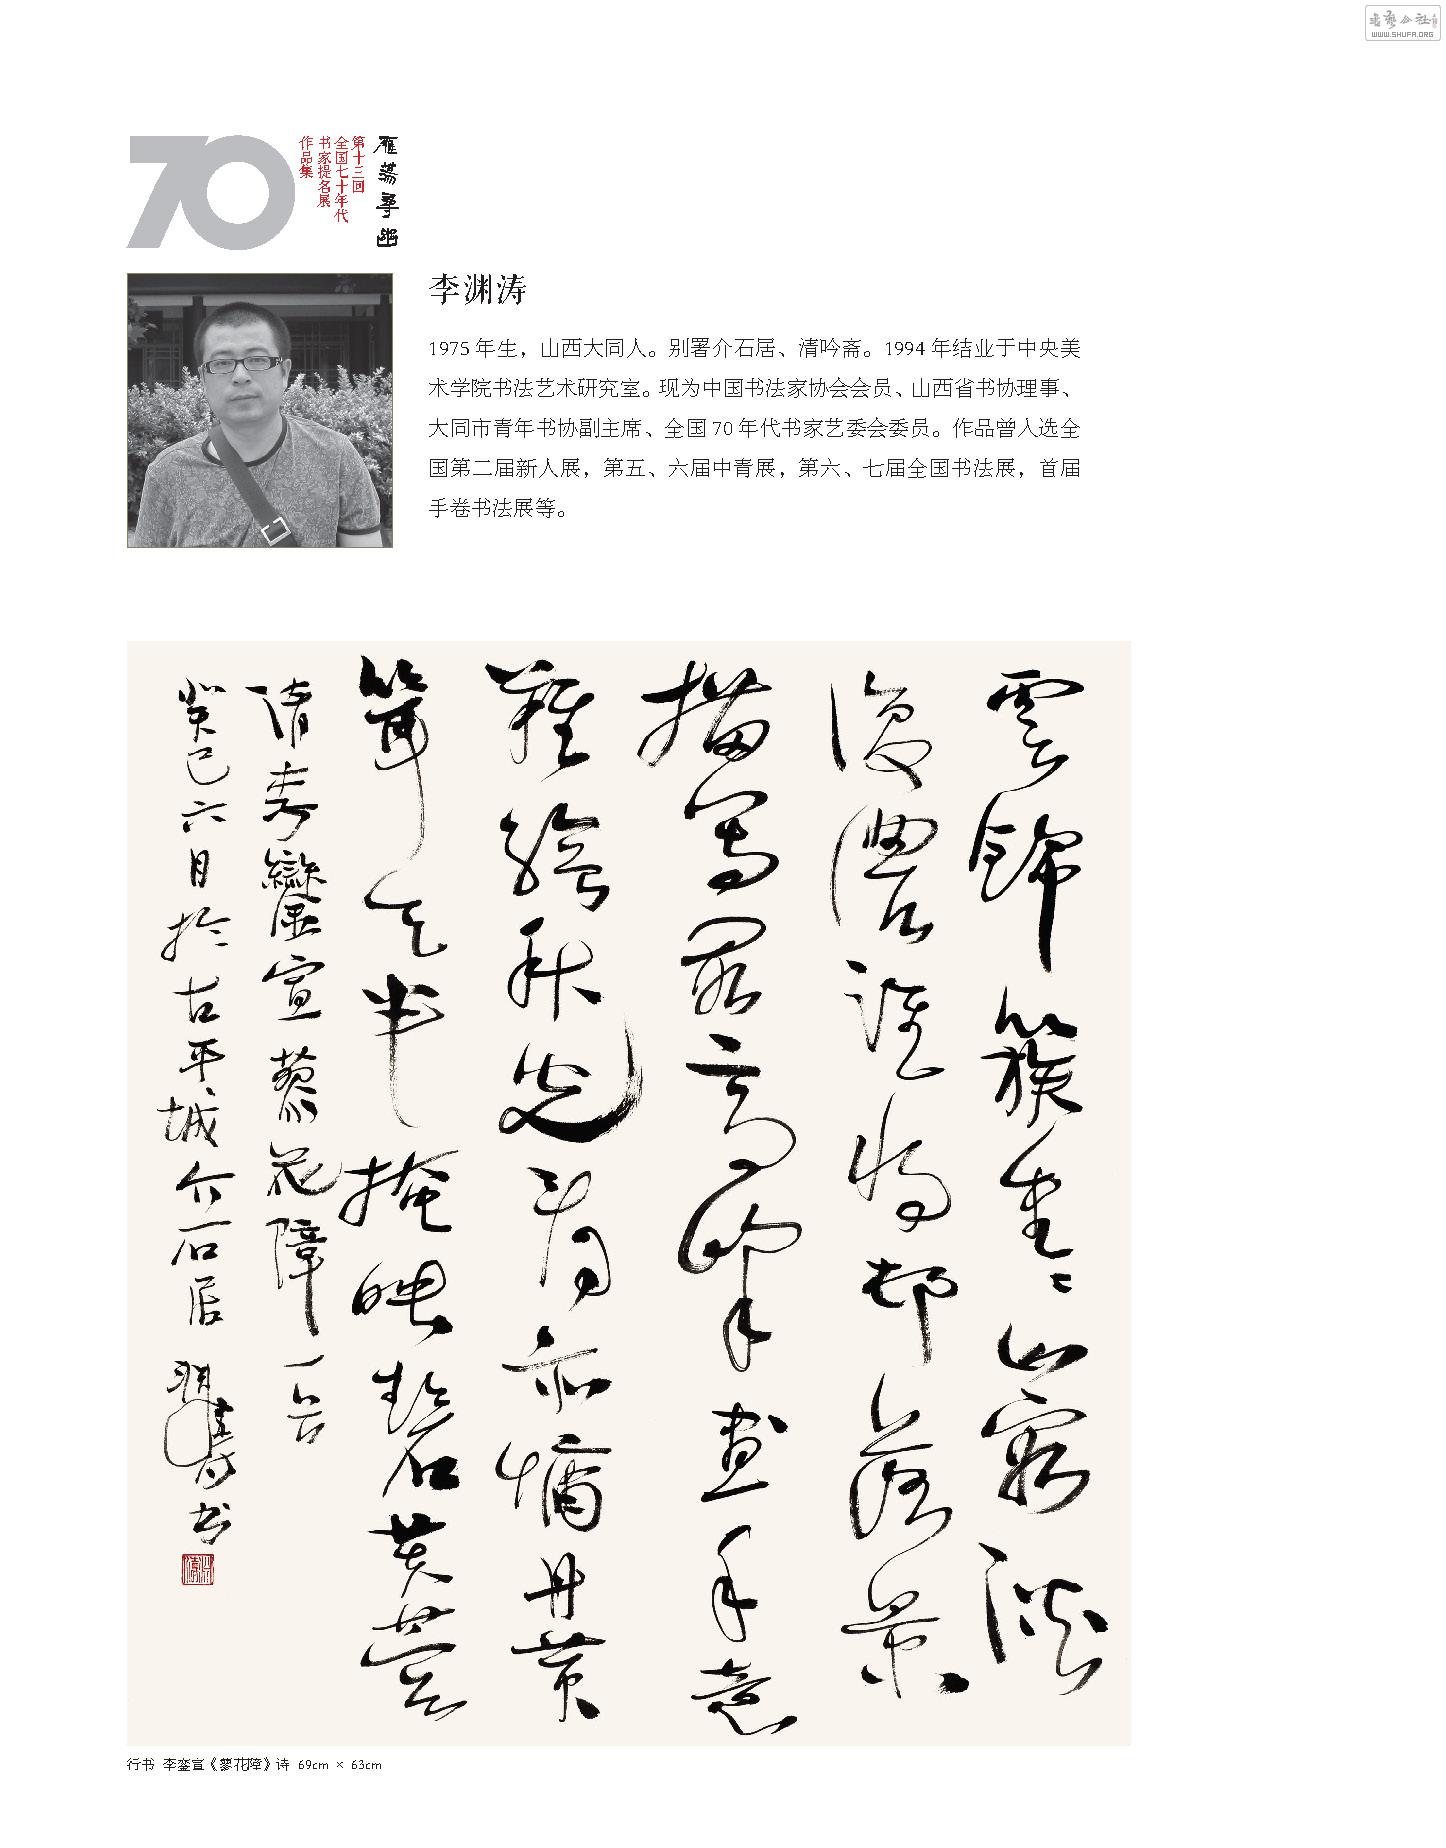 书艺公社
WWW.SHUFA.ORG
70
雁荡寻幽
第十三回
全国七十年代
书家提名展
作品集
李渊涛
1975 年生，山西大同人。别署介石居、清吟斋。1994 年结业于中央美
术学院书法艺术研究室。现为中国书法家协会会员、山西省书协理事、
大同市青年书协副主席、全国 70 年代书家艺委会委员。作品曾入选全
国第二届新人展，第五、六届中青展，第六、七届全国书法展，首届
手卷书法展等。
雲錦簇重〻山容淡
復濃誰将邨落景
描寫最高峰画手意
難繪秋光看亦慵丹黄
半掩映碧芙蓉
清李鑾宣蓼花障一首
癸巳六月於古平城介石居 淵濤书
行书 李銮宣《蓼花障》诗 69cm × 63cm